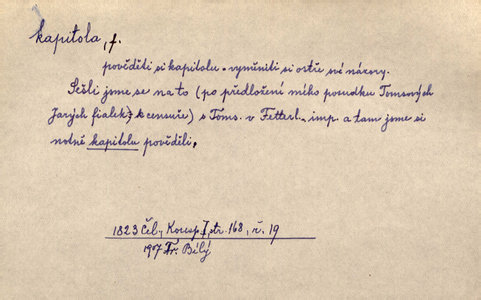 kapitola, f.
pověděti si kapitolu = vyměniti si ostře své názory.
Sešli jsme se na to (po předložení mého posudku Tomsových
Jarých fialek k censuře) s Toms. v Fetterl. imp. a tam jsme si
notně kapitolu pověděli.
1823 Čel., Koresp. I, str. 168, ř. 19
1907 Fr. Bílý